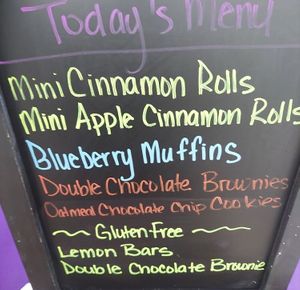 Today's Menu
Mini Cinnamon Rolls
Mini Apple Cinnamon Rolls
Blueberry Muffins
Double Chocolate Brownies
Oatmeal Chocolate Chip Cookies
~ Gluten Free ~
Lemon Bars
Double Chocolate Brownie